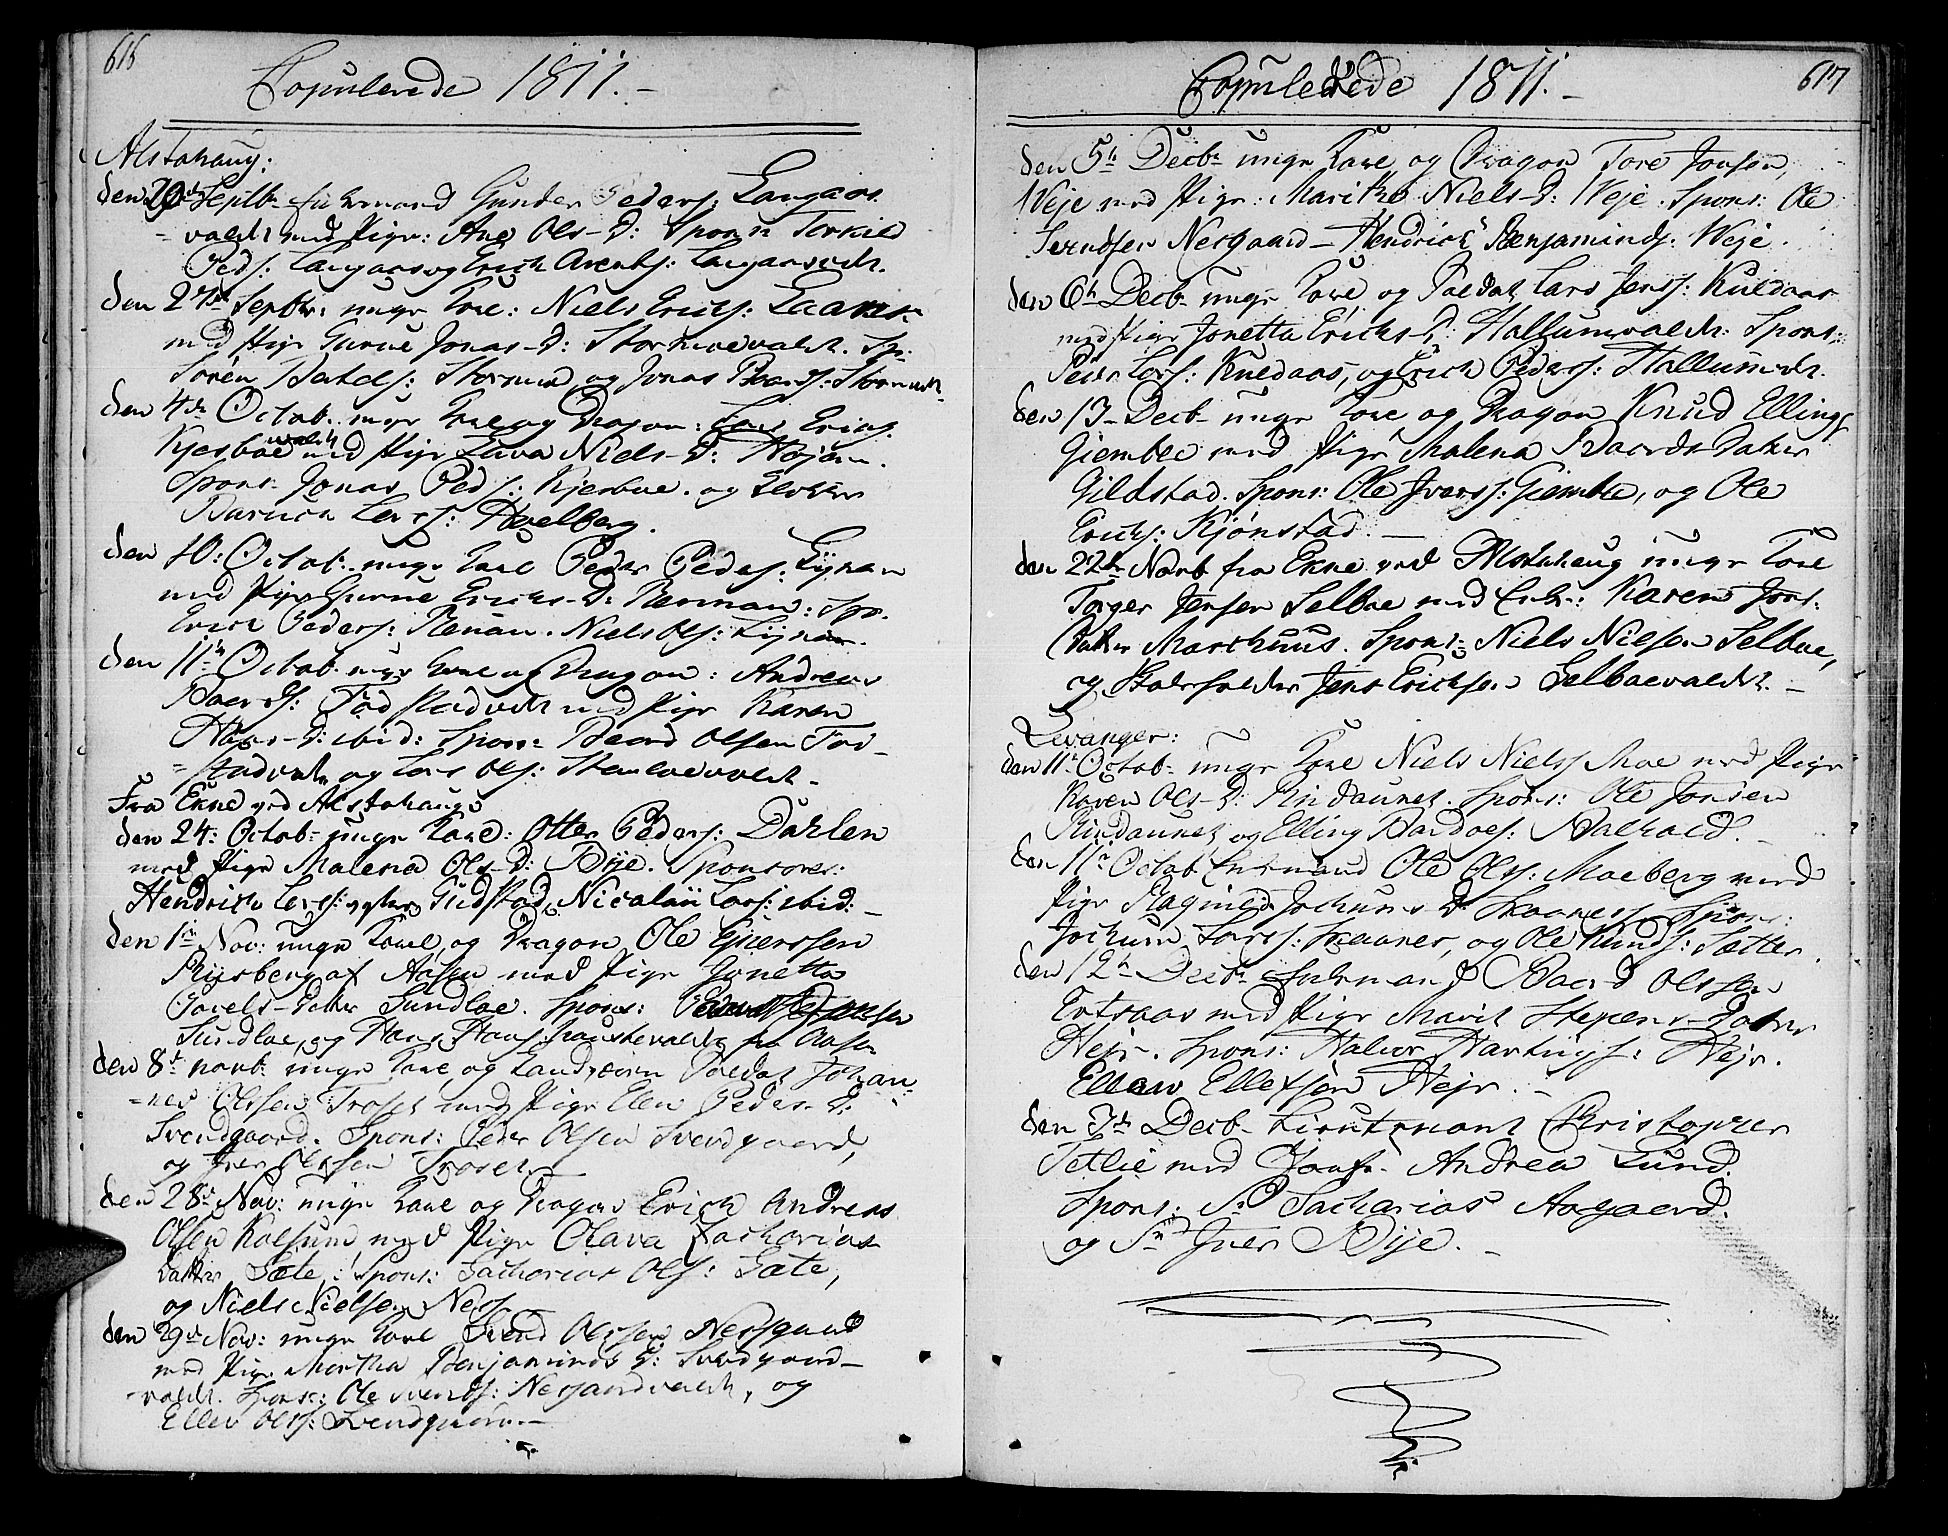 616
Copulerede 1811.
Alstahaug:
den 20de Septb: Enkemand Gunder Peders: Langaas
valdt med Pige: Ane Ols-D: Spons: Torkild
Peds: Langaas og Erich Arents: Langaasvalt.
den 27de Septbr: unge Karl: Niels Erichs: Skaanes
med Pige Gurue Jonas-D: Stormoevaldt. Sp:
Sören Bertels: Stormoe og Jonas Baards: Stormoevalt.
den 4de Octob: unge Karl og Dragon: Lars Erichs.
Kjesboe valdt med Pige Zuva Niels-D: Højem.
Spons: Jonas Peds: Kjesboe. og Klokker
Baruch Lars: Hvelberg.
den 10: Octob: unge Karl Peder Peders: Lynum
med Pige Gurue Erichs-D: Renaan: Spo.
Erich Peders: Renaan. Niels Ols: Lynum.
den 11te Octob: unge Karl og Dragon: Andreas
Baards: Fostadvalt med Pige Karen
Hans-D: ibid: Spons: Baard Olsen Fos-
stadvalt og Lars Ols: Stenloevaldt.
Fra Ekne ved Alstahaug
den 24: Octob: unge Karl: Otter Peders: Dahlen
med Pige Malena Ols-D: Bye. Sponsores:
Hendrich Lars: Gudstad, Nicolaii Lars: ibid:
den 1ste Nov: unge Karl og Dragon Ole Ejnersen
Rysberg af Aasen med Pige Jonetta
Povels-Datter Sundloe. Spons:
Sundloe, og Hans Hans: Hausbevaldt fra Aasen
den 8de novb: unge Karl og Landværn Soldat Johan-
nes Olsen Troset med Pige Elen Peders-D:
Svendgaard. Spons: Peder Olsen Svendgaard,
og Iver Olsen Troset.
den 28de Nov: unge Karl og Dragon Erich Andreas
Olsen Kolsum, med Pige Olava Zacharias
datter Sæte, Spons: Zacharias Ols: Sæte,
og Niels Nielsen Ness.
den 29de Nov: unge Karl Svend Olsen Nersgaard
med Pige Martha Benjamins D: Svendgaard-
valdt. Spons: Ole Svends: Nersgaardvaldt, og
Ellev Ols: Svendgaard.
617
Copulerede 1811.
den 5te Decb: unge Karl og Dragon Tore Jonsen,
Veje med Pige: Marithe Niels-D: Veje. Spons: Ole
Svendsen Nergaard - Hendrich Benjamins: Veje.
den 6te Decb: unge Karl og Soldat Lars Jens: Kuldaas
med Pige Jonetta Erichs-D: Hallumvaldt. Spons:
Peder Lars: Kuldaas, og Erich Peders: Hallumvalt.
den 13- Decb- unge Karl og Dragon Knud Ellings
Giemble med Pige Malena Baards-Datter
Gildstad. Spons: Ole Ivers: Giemble, og Ole
Erichs: Kjönstad.
den 22de Novb fra Ekne ved Alstahaug unge Karl
Torger Jensen Selboe med Enke: Karen Jons-
Datter Marthuus. Spons: Niels Nielsen Selboe,
og Stedsholder Jens Erichsen Selboevaldt.
Levanger:
den 11te Octob: unge Karl Niels Niels: Moe med Pige
Karen Ols-D: Rindaunet. Spons: Ole Jonsen
Rindaunet, og Elling Bardoes: Aalhald.
den 11te Octob Enkemand Ole Ols: Moeberg med
Pige Ragnild Jochums D: Skaanes. Spons:
Jochum Lars: Skaanes, og Ole Knuds: Sætter.
den 12te Decb: Enkemand Baard Olsen
Extraas med Pige Marit Stephens-Datter
Heje. Spons: Halvor Hartvigs: Heje.
Ellev Ellefsen Heje.
den 7de Decb- Lieutenant Christopher
Tetlie med Jomfr. Andrea Lund.
Spons: Sr. Zacharias Aagaard.
og Sr. Iver Bye.